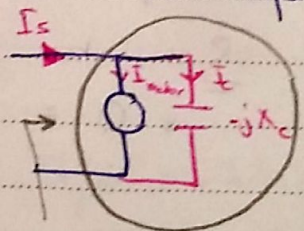 Is
I motor I c
-j Xc